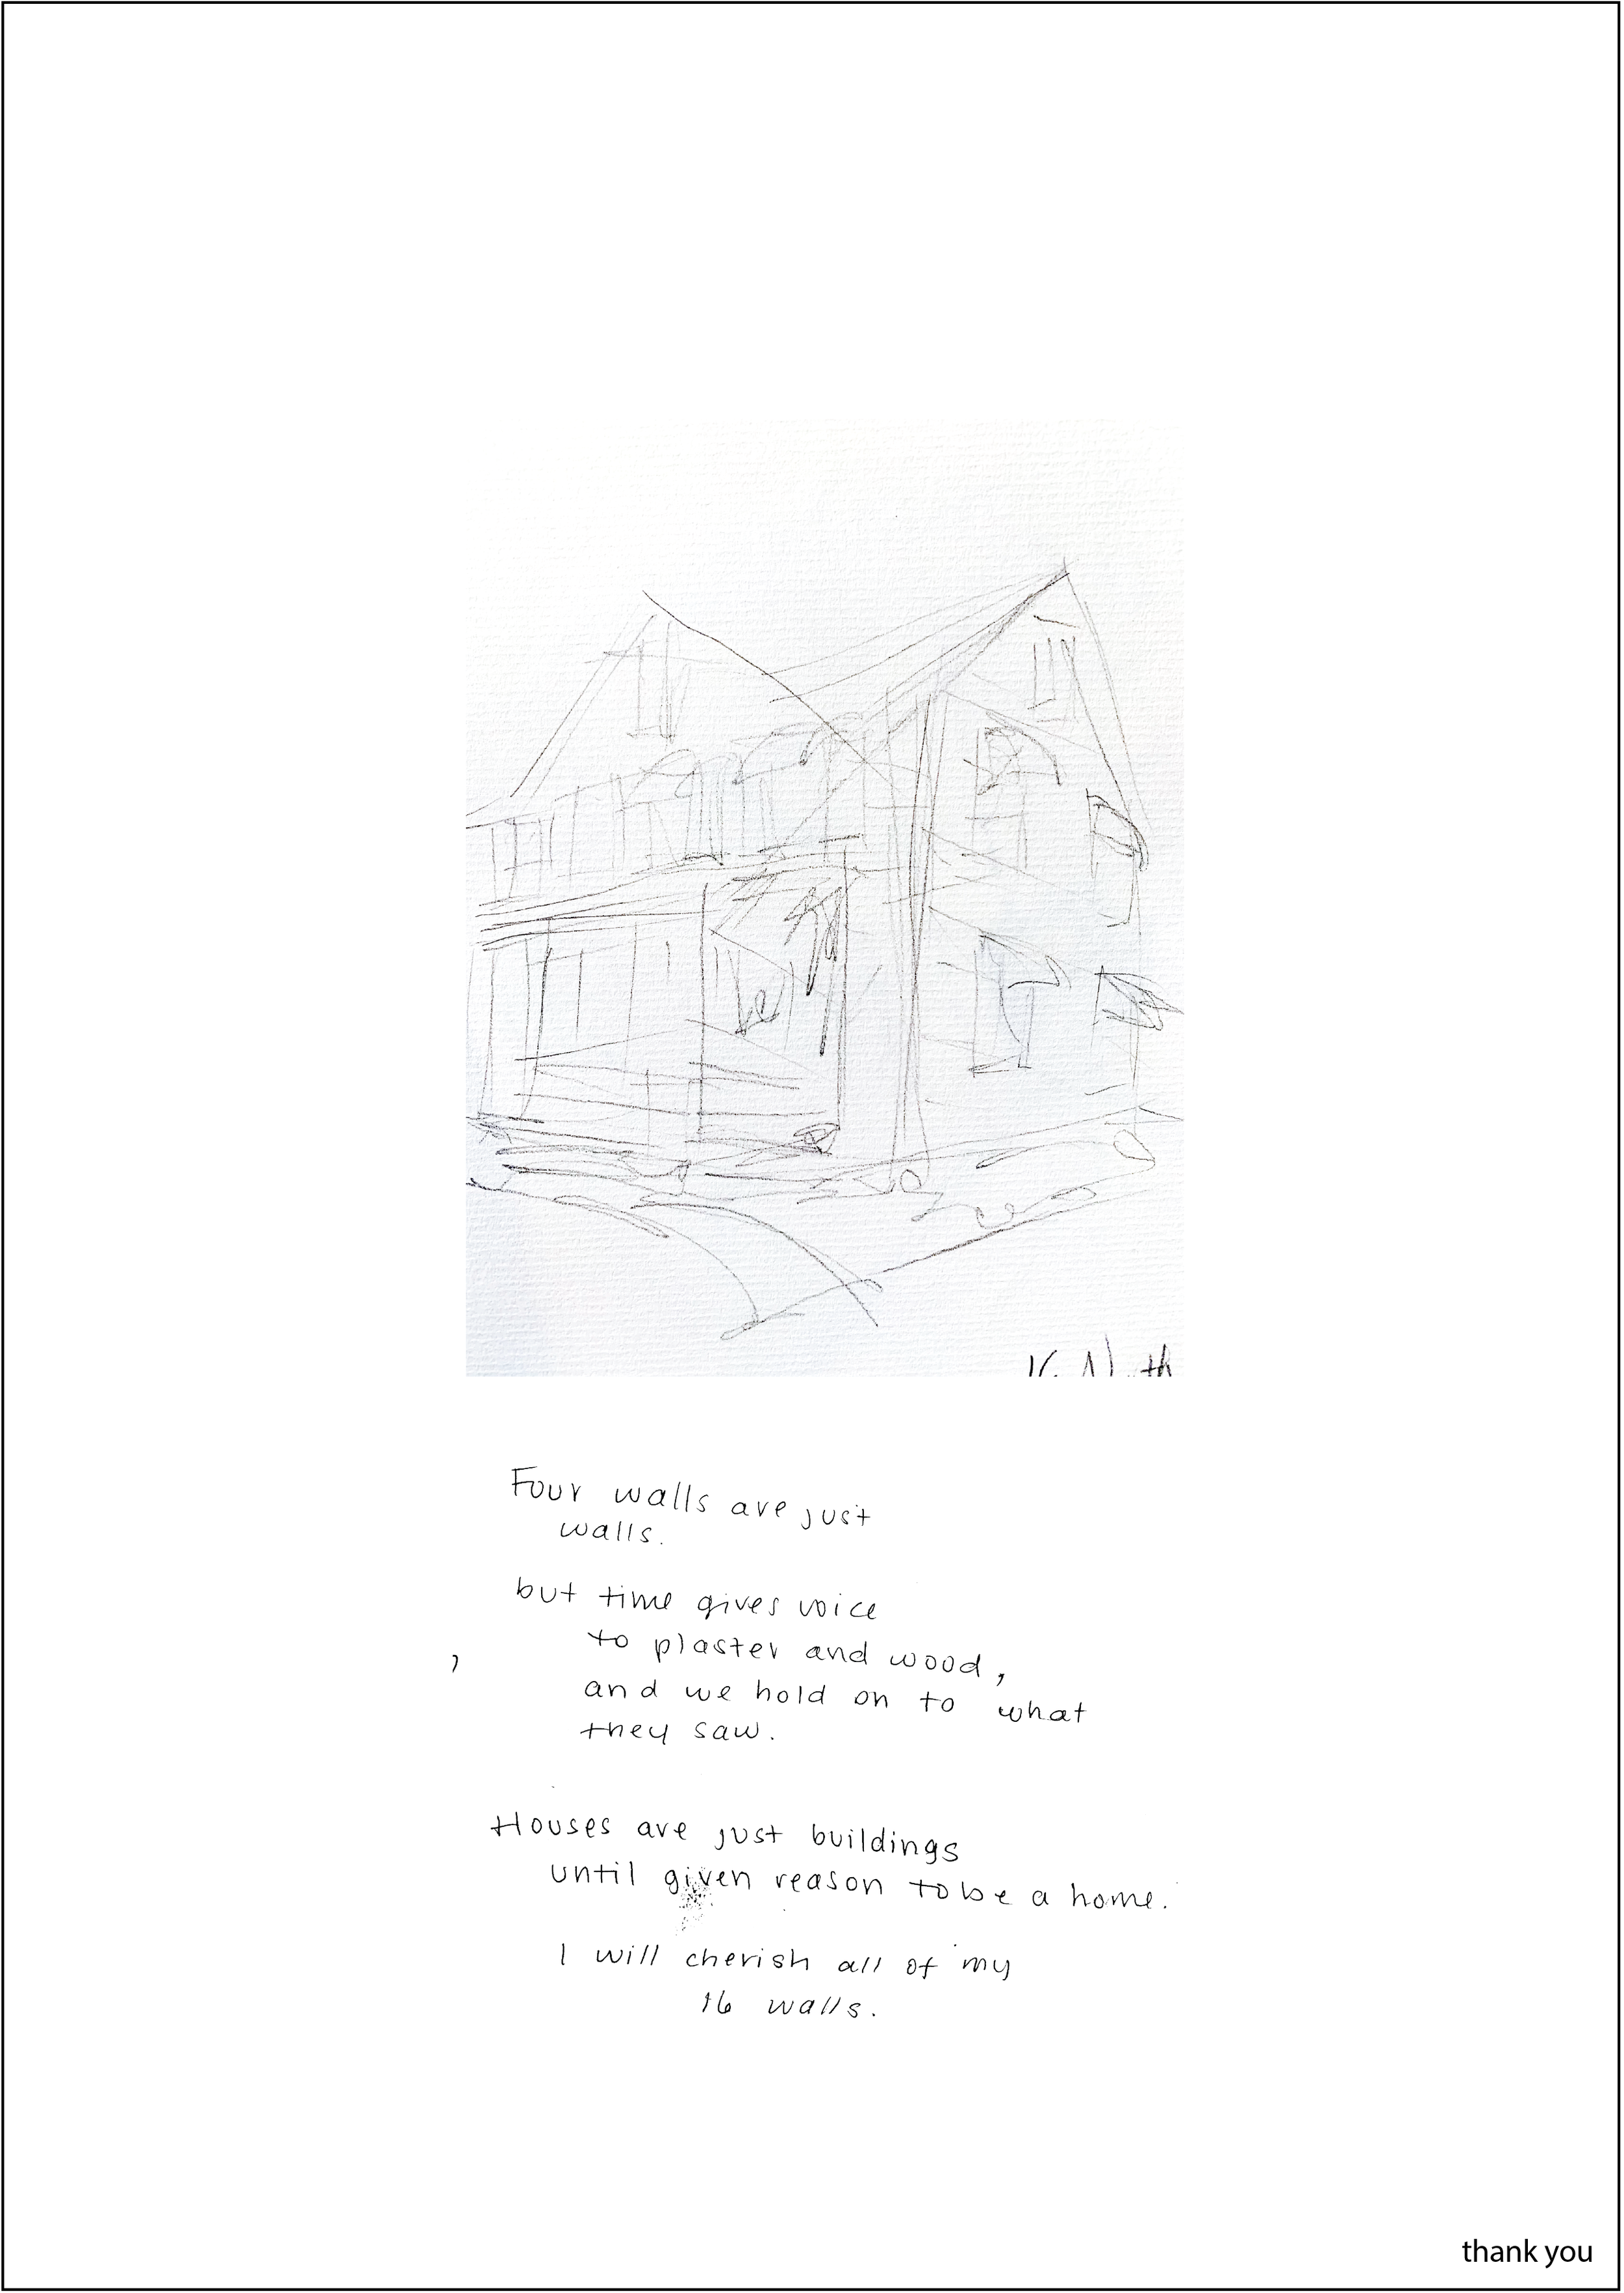 Four walls are just
walls.
but time gives voice
to plaster and wood,
and we hold on to what
they saw.
Houses are just buildings
until given reason to be a home.
I will cherish all of my
16 walls.
thank you